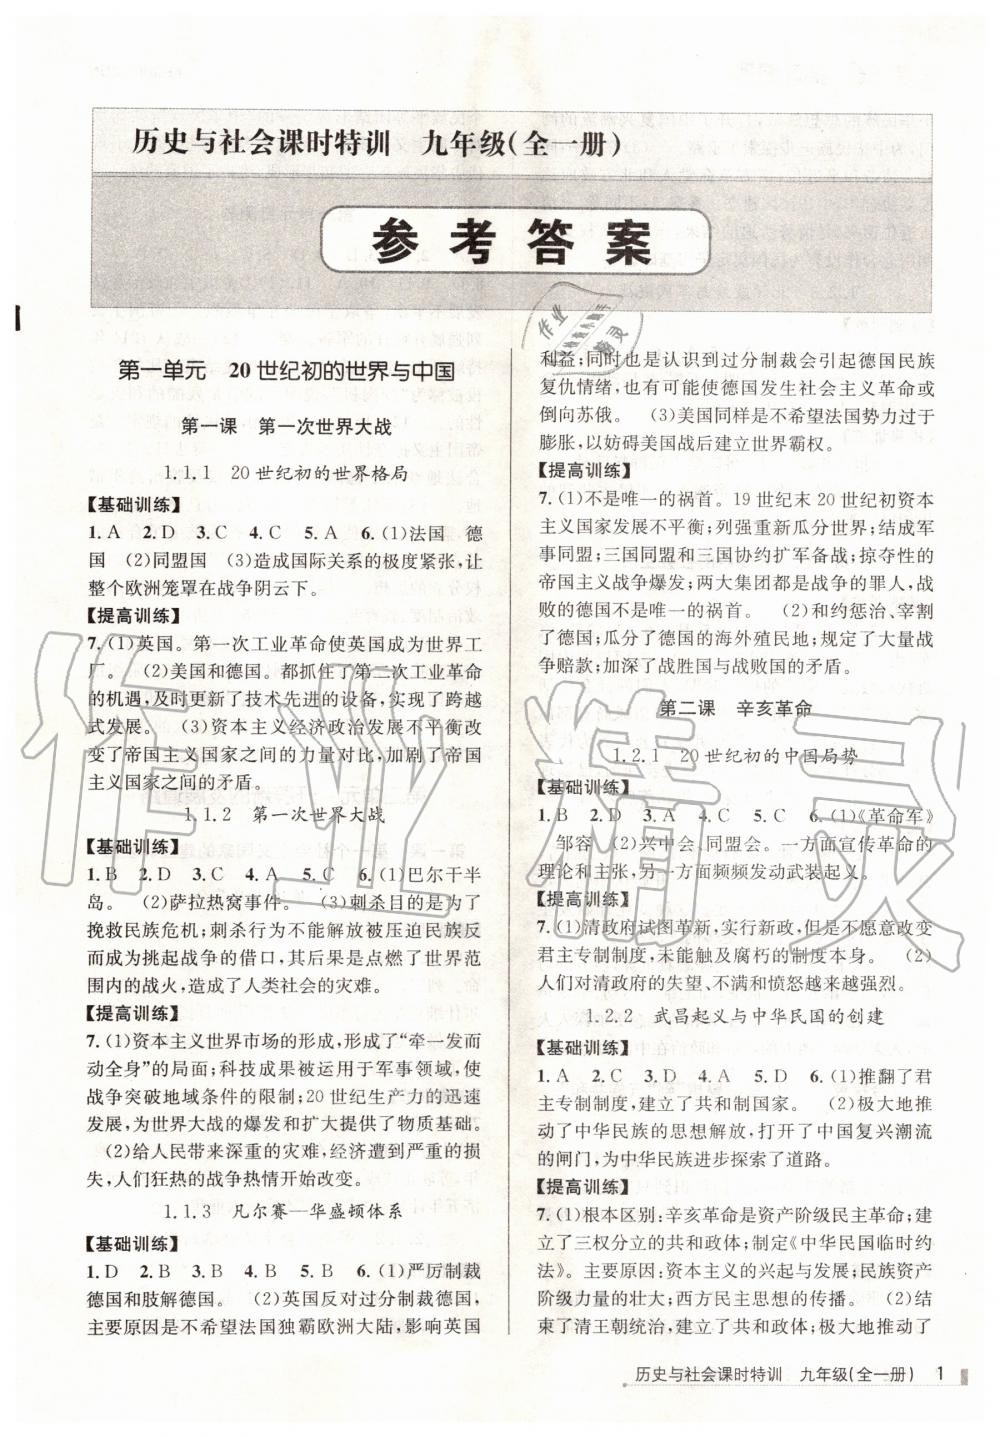 历史与社会课时特训 九年级(全一册)
参考答案
第一单元 20世纪初的世界与中国
第一课 第一次世界大战
1.1.1 20世纪初的世界格局
【基础训练】
1. A 2. D 3. C 4. C 5. A 6. (1)法国 德
国 (2)同盟国 (3)造成国际关系的极度紧张,让
整个欧洲笼罩在战争阴云下。
【提高训练】
7. (1)英国。第一次工业革命使英国成为世界工
厂。 (2)美国和德国。都抓住了第二次工业革命
的机遇,及时更新了技术先进的设备,实现了跨越
式发展。 (3)资本主义经济政治发展不平衡改
变了帝国主义国家之间的力量对比,加剧了帝国
主义国家之间的矛盾。
1.1.2 第一次世界大战
【基础训练】
1. B 2. D 3. A 4. A 5. C 6. (1)巴尔干半
岛。 (2)萨拉热窝事件。 (3)刺杀目的是为了
挽救民族危机;刺杀行为不能解放被压迫民族反
而成为挑起战争的借口,其后果是点燃了世界范
围内的战火,造成了人类社会的灾难。
【提高训练】
7. (1)资本主义世界市场的形成,形成了“牵一发而
动全身”的局面;科技成果被运用于军事领域,使
战争突破地域条件的限制;20世纪生产力的迅速
发展,为世界大战的爆发和扩大提供了物质基础。
(2)给人民带来深重的灾难,经济遭到严重的损
失,人们狂热的战争热情开始改变。
1.1.3 凡尔赛—华盛顿体系
【基础训练】
1. D 2. B 3. B 4. B 5. B 6. (1)严厉制裁
德国和肢解德国。 (2)英国反对过分制裁德国,
主要原因是不希望法国独霸欧洲大陆,影响英国
利益;同时也是认识到过分制裁会引起德国民族
复仇情绪,也有可能使德国发生社会主义革命或
倒向苏俄。 (3)美国同样是不希望法国势力过于
膨胀,以妨碍美国战后建立世界霸权。
【提高训练】
7. (1)不是唯一的祸首。19世纪末20世纪初资本
主义国家发展不平衡;列强重新瓜分世界;结成军
事同盟;三国同盟和三国协约扩军备战;掠夺性的
帝国主义战争爆发;两大集团都是战争的罪人,战
败的德国不是唯一的祸首。 (2)和约惩治、宰割
了德国;瓜分了德国的海外殖民地;规定了大量战
争赔款;加深了战胜国与战败国的矛盾。
第二课 辛亥革命
1.2.1 20世纪初的中国局势
【基础训练】
1. B 2. D 3. A 4. C 5. C 6. (1)《革命军》
邹容 (2)兴中会、同盟会。一方面宣传革命的
理论和主张,另一方面频频发动武装起义。
【提高训练】
7. (1)清政府试图革新,实行新政,但不愿意改变
君主专制制度,未能触及腐朽的制度本身。 (2)
人们对清政府的失望、不满和愤怒越来越强烈。
1.2.2 武昌起义与中华民国的创建
【基础训练】
1. A 2. C 3. D 4. A 5. D 6. (1)推翻了君
主专制制度,建立了共和制国家。 (2)极大地推
动了中华民族的思想解放,打开了中国复兴潮流
的闸门,为中华民族进步探索了道路。
【提高训练】
7. (1)根本区别:辛亥革命是资产阶级民主革命,建
立了三权分立的共和政体;制定《中华民国临时约
法》。主要原因:资本主义的兴起与发展;民族资产
阶级力量的壮大;西方民主思想的传播。 (2)结
束了清王朝统治,建立了共和政体;极大地推动了
历史与社会课时特训 九年级(全一册) 1